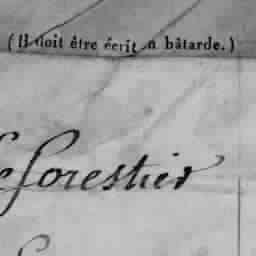 ( Il doit être écrit en bâtarde. )
e forestier